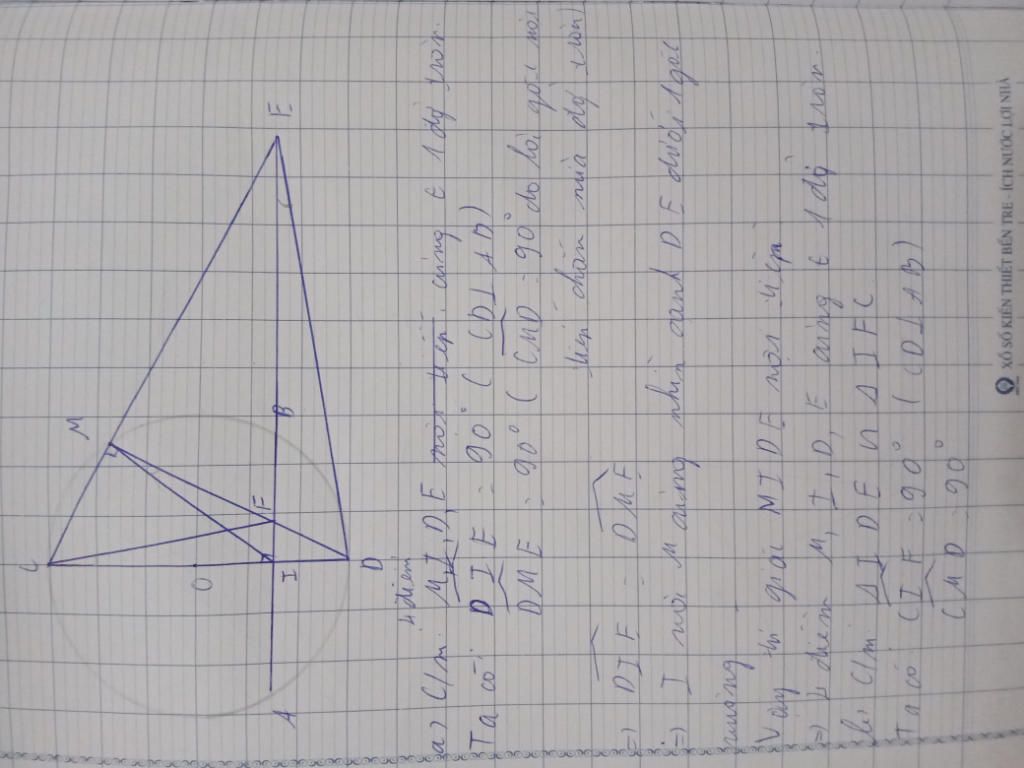 C
M
O
I
F
B
A
E
D
4 điểm
a) C/m: M,I,D,E nội tiếp, cùng ∈ 1 đg tròn.
Ta có: DIE = 90° ( CD ⊥ AB )
DME = 90° ( CMD = 90° do là góc nội
tiếp chắn nửa đg tròn)
=) DIE = DME
=) I với M cùng nhìn cạnh DE dưới 1 góc
vuông
Vậy tứ giác MIDE nội tiếp
=) 4 điểm M, I, D, E cùng ∈ 1 đg tròn.
b) C/m ΔIDE ∽ ΔIFC
Ta có CIF = 90° ( CD ⊥ AB )
CMD = 90°
XỔ SỐ KIẾN THIẾT BẾN TRE - ÍCH NƯỚC LỢI NHÀ